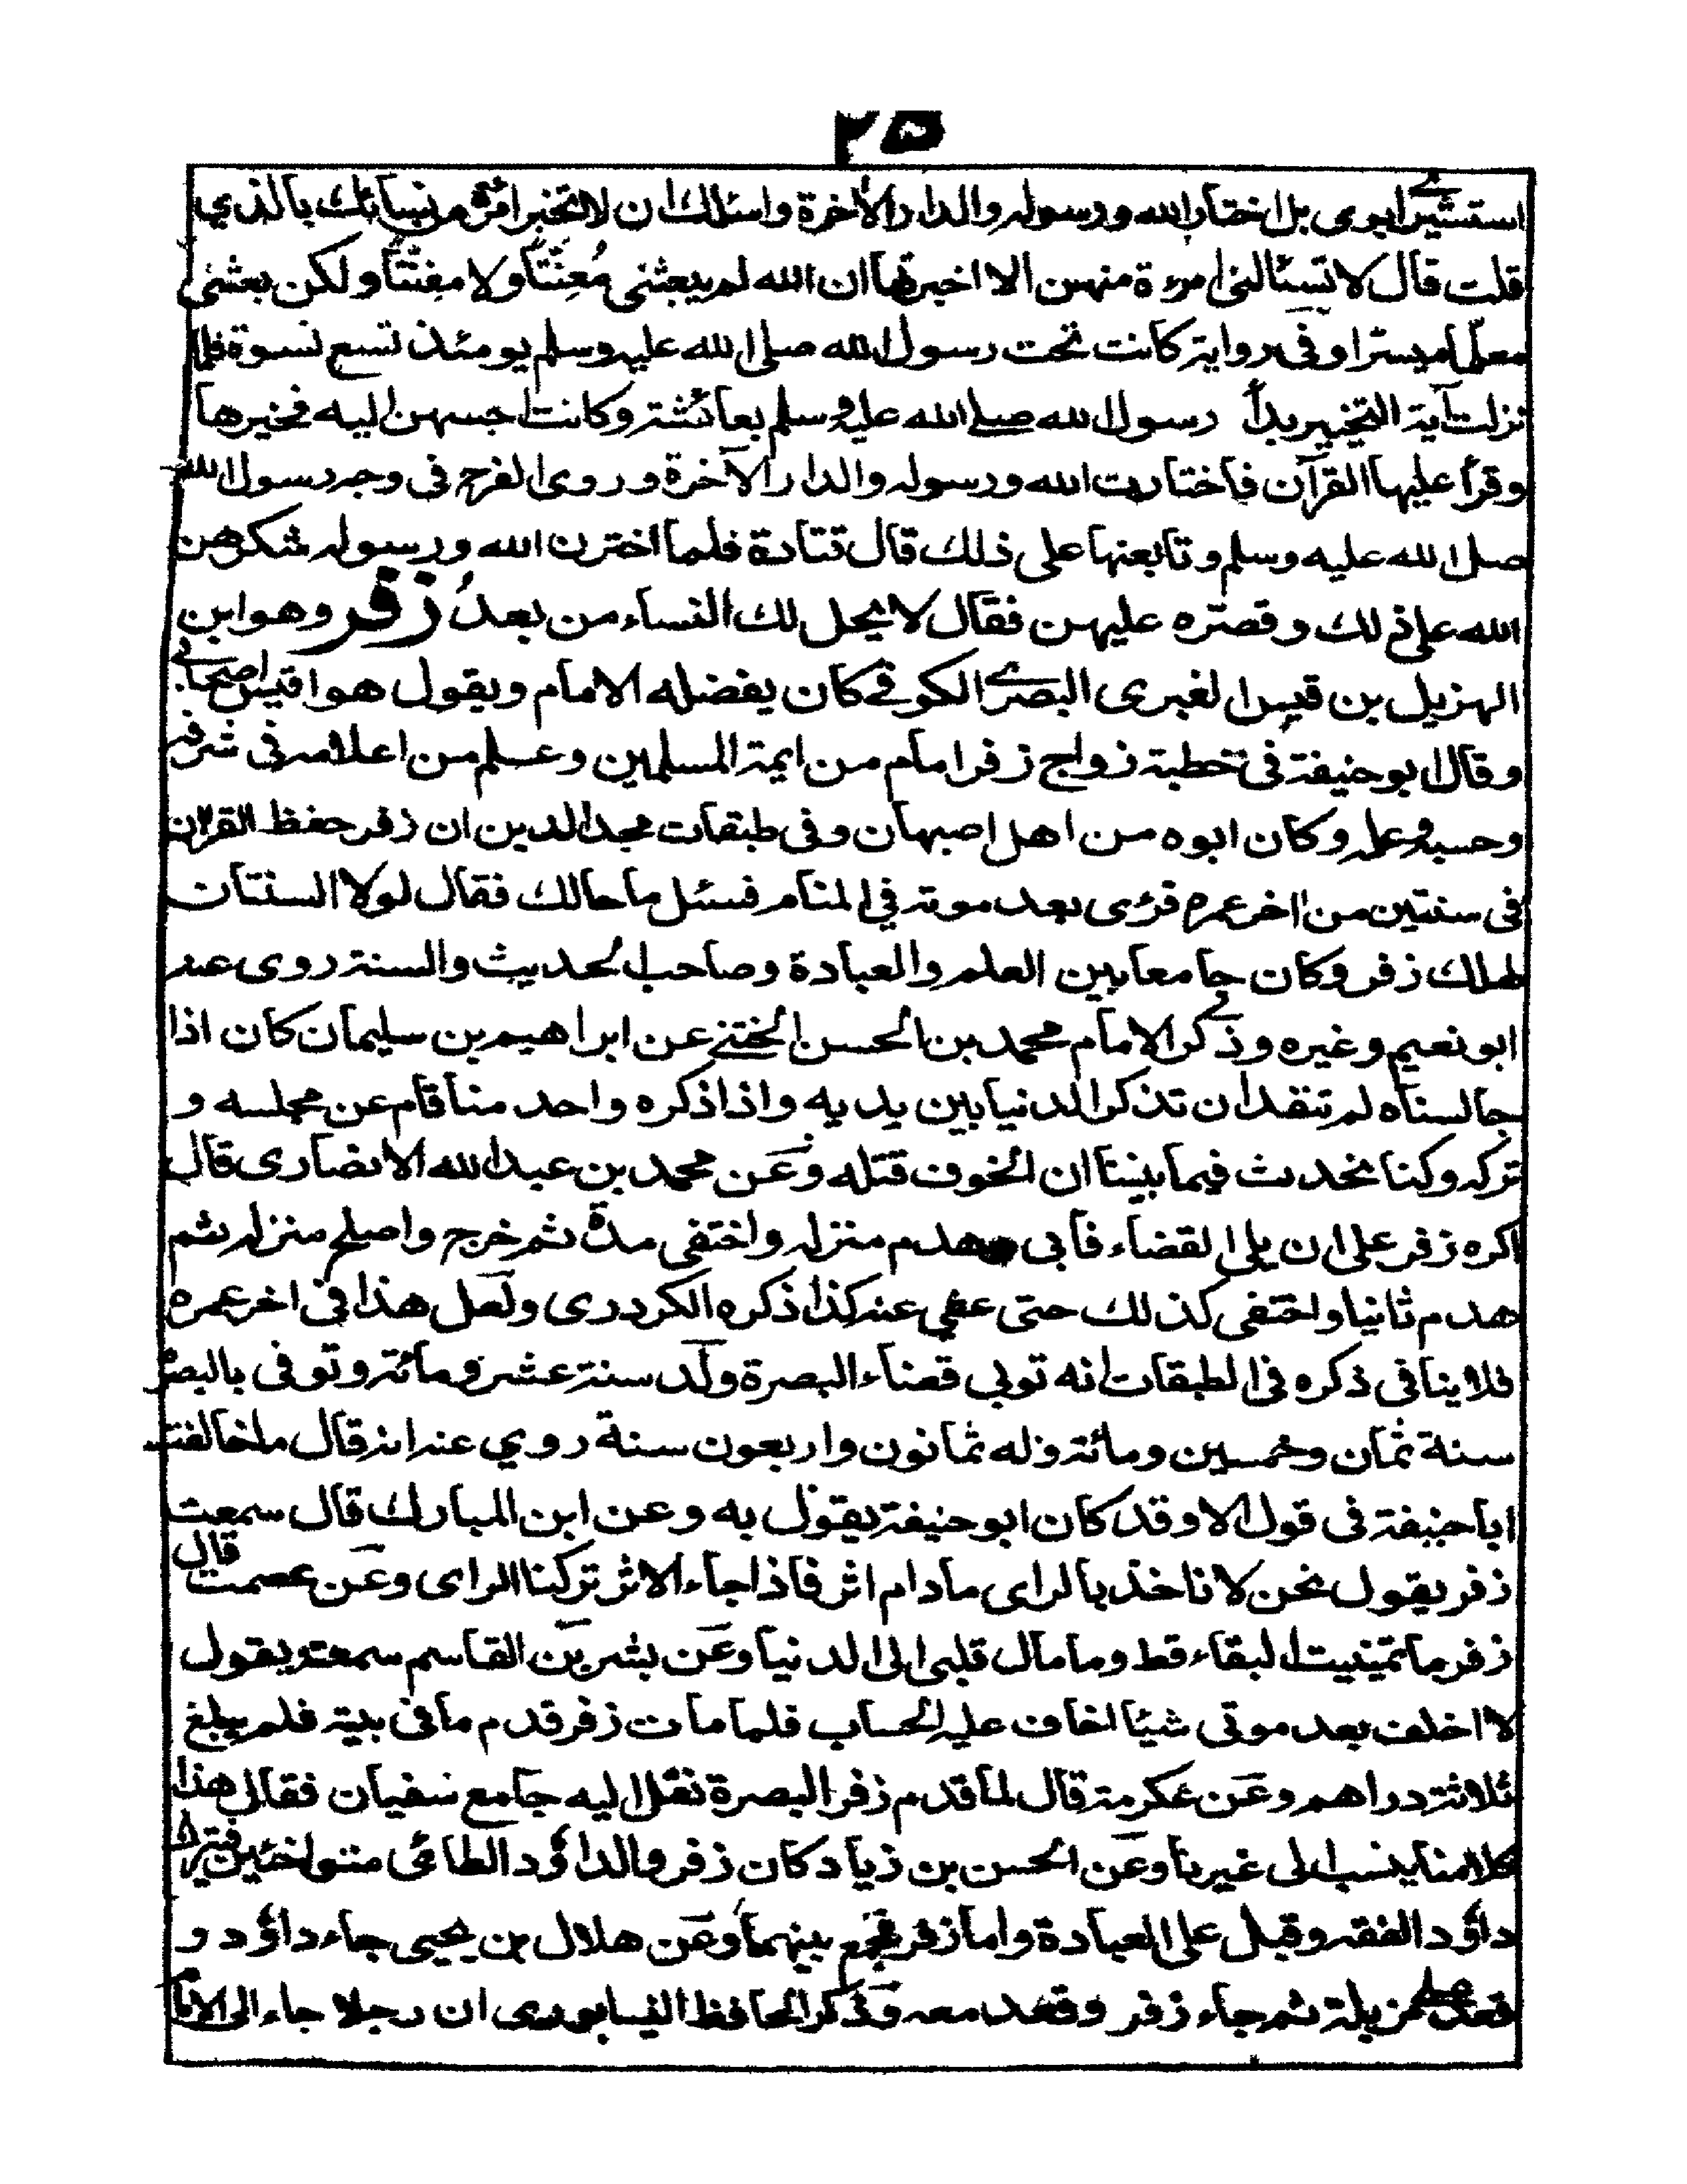 ٢٥
استشير ابوي بل اختار الله ورسوله والدار الآخرة واسئلك ان لا تخبر امرأة من نسائك بالذي
قلت قال لا تسئالنى امرءة منهن الا اخبرتها ان الله لم يبعثنى مُعنّتا ولا مفتنّتا ولكن بعثنى
معلّما ميسّرا وفى رواية كانت تحت رسول الله صلى الله عليه وسلم يومئذ تسع نسوة فلما
نزلت آية التخيير بدأ رسول الله صلى الله عليه وسلم بعائشة وكانت احبهن اليه فخيرها
وقرأ عليها القرآن فاختارت الله ورسوله والدار الآخرة وروى الفرح فى وجه رسول الله
صلى الله عليه وسلم وتابعنها على ذلك قال قتادة فلما اخترن الله ورسوله شكرهن
الله على ذلك وقصره عليهن فقال لا يحل لك النساء من بعدُ زفر وهو ابن
الهزيل بن قيس الغبرى البصرى الكوفى كان يفضله الامام ويقول هو اقيس اصحابى
وقال ابو حنيفة فى خطبة زواج زفر امام من ايمة المسلمين وعلم من اعلامه فى شرفه
وحسبه وعلمه وكان ابوه من اهل اصبهان وفى طبقات مجد الدين ان زفر حفظ القرآن
فى سنتين من اخر عمره فرئى بعد موته فى المنام فسئل ما حالك فقال لولا السنتان
لهلك زفر وكان جامعا بين العلم والعبادة وصاحب الحديث والسنة روى عنه
ابو نعيم وغيره وذكر الامام محمد بن الحسن الختنى عن ابراهيم بن سليمان كان اذا
جالسناه لم تنقد ان تذكر الدنيا بين يديه واذا ذكره واحد منا قام عن مجلسه و
تركه وكنا نحدث فيما بيننا ان الخوف قتله وعن محمد بن عبد الله الانصارى قال
اكره زفر على ان يلى القضاء فابى هدم منزله واختفى مدة ثم خرج واصلح منزله ثم
هدم ثانيا واختفى كذلك حتى عفى عنه كذا ذكره الكردرى ولعل هذا فى اخر عمره
فلا ينافى ذكره فى الطبقات انه تولى قضاء البصرة ولد سنة عشر ومائة وتوفى بالبصرة
سنة ثمان وخمسين ومائة وله ثمانون واربعون سنة روي عنه انه قال ما خالفت
ابا حنيفة فى قول الا وقد كان ابو حنيفة يقول به وعن ابن المبارك قال سمعت
زفر يقول نحن لا ناخذ بالراى مادام اثر فاذا جاء الاثر تركنا الراى وعن عصمت قال
زفر ما تمنيت البقاء قط وما مال قلبى الى الدنيا وعن بشر بن القاسم سمعته يقول
لا اخلف بعد موتى شيئا اخاف عليه الحساب فلما مات زفر قدم ما فى بيته فلم يبلغ
ثلاثة دراهم وعن عكرمة قال لما قدم زفر البصرة نقل اليه جامع سفيان فقال هذا
كلامنا ينسب الى غيرنا وعن الحسن بن زياد كان زفر والداؤد الطائى متواخئين فترك
داؤد الفقه وقبل على العبادة واما زفر فجمع بينهما وعن هلال بن يحيى جاء داؤد و
قعد على مزبلة ثم جاء زفر وقعد معه وذكر الحافظ النيسابورى ان رجلا جاء الى الامام